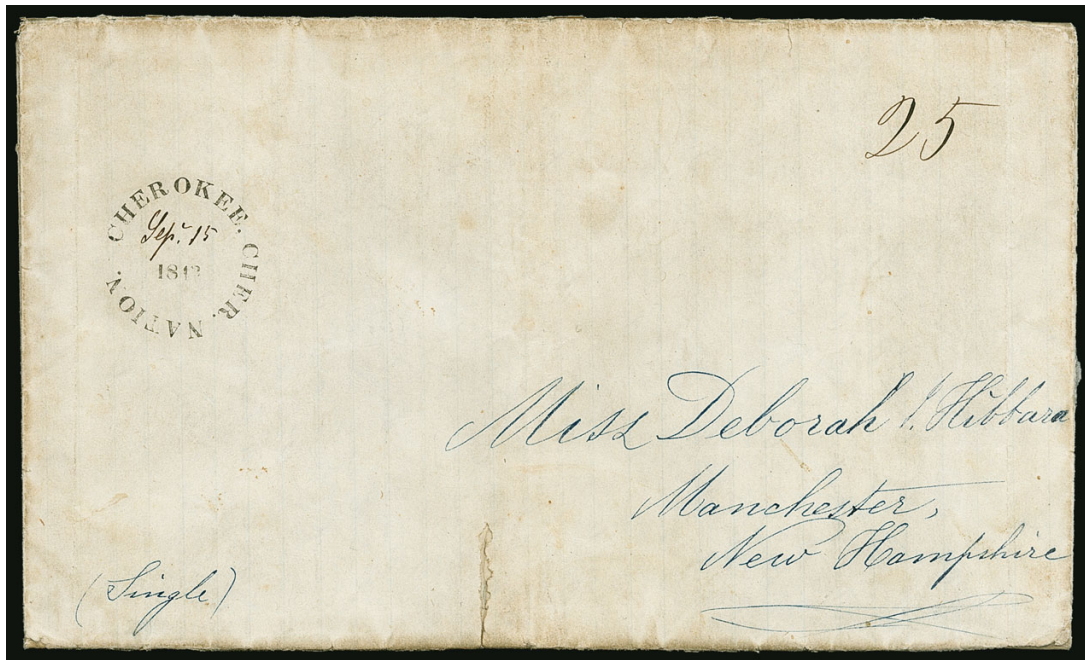 25
CHEROKEE. CHER. NATION.
Sepr. 15
184
Miss Deborah Hibbard
Manchester,
New Hampshire
(Single)